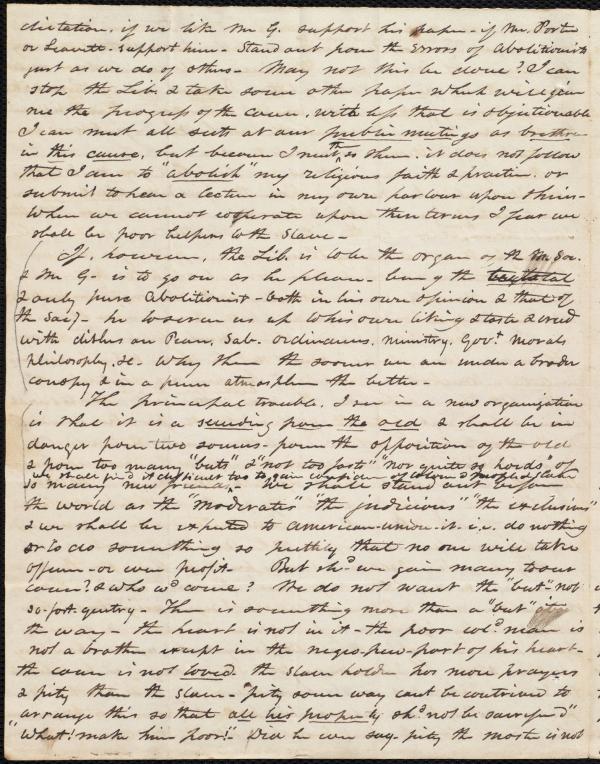 dictation, if we like Mr G. support his paper - if Mr. Porter
or Leavitt - support him - Stand out from the Errors of Abolitionists
just as we do of others - May not this be done? I can
stop the Lib. & take some other paper which will give
me the progress of the cause, with less that is objectionable
I can meet all sects at our public meetings as brethren
in this cause, but because I meet them, it does not follow
that I am to "abolish" my religious faith & practice, or
submit to hear a lecture in my own parlour upon this -
When we cannot cooperate upon these terms I fear we
shall be poor helpers to the Slave -
If, however, the Lib. is to be the organ of the Soc.
& Mr G - is to go on as he please - being the
& only pure Abolitionist - both in his own opinion & that of
the Soc) - he to serve us up to his own liking & taste & creed
with dishes on Peace, Sab. ordinances, ministry, Govt morals
philosophy, &c - Why then the sooner we are under a broader
canopy & in a purer atmosphere the better -
The principal trouble, I see in a new organization
is that it is a seceding from the old & shall be in
danger from two sources - from the opposition of the old
& from too many "buts" & "not too fasts" "not quite so hards" of
we shall find it difficult too to gain confidence of
so many new friends, - We shall stand out before
the world as the "moderates" "the judicious" "the exclusives"
& we shall be expected to american-union-it - i.e. do nothing
or to do something so prettily that no one will take
offence - or even profit. But sh'd we gain many to our
cause? & who wd come? We do not want the "but"-not-
so-fast-gentry - There is something more than a "but" in
the way - the heart is not in it - the poor cold man is
not a brother except in the negro-pew-part of his heart -
the cause is not loved. the Slave holder has more prayers
& pity than the slave - "pity some way cant be contrived to
arrange this so that all his property shd not be sacrificed"
"What! make him poor!" Did he ever say - pity the most is not